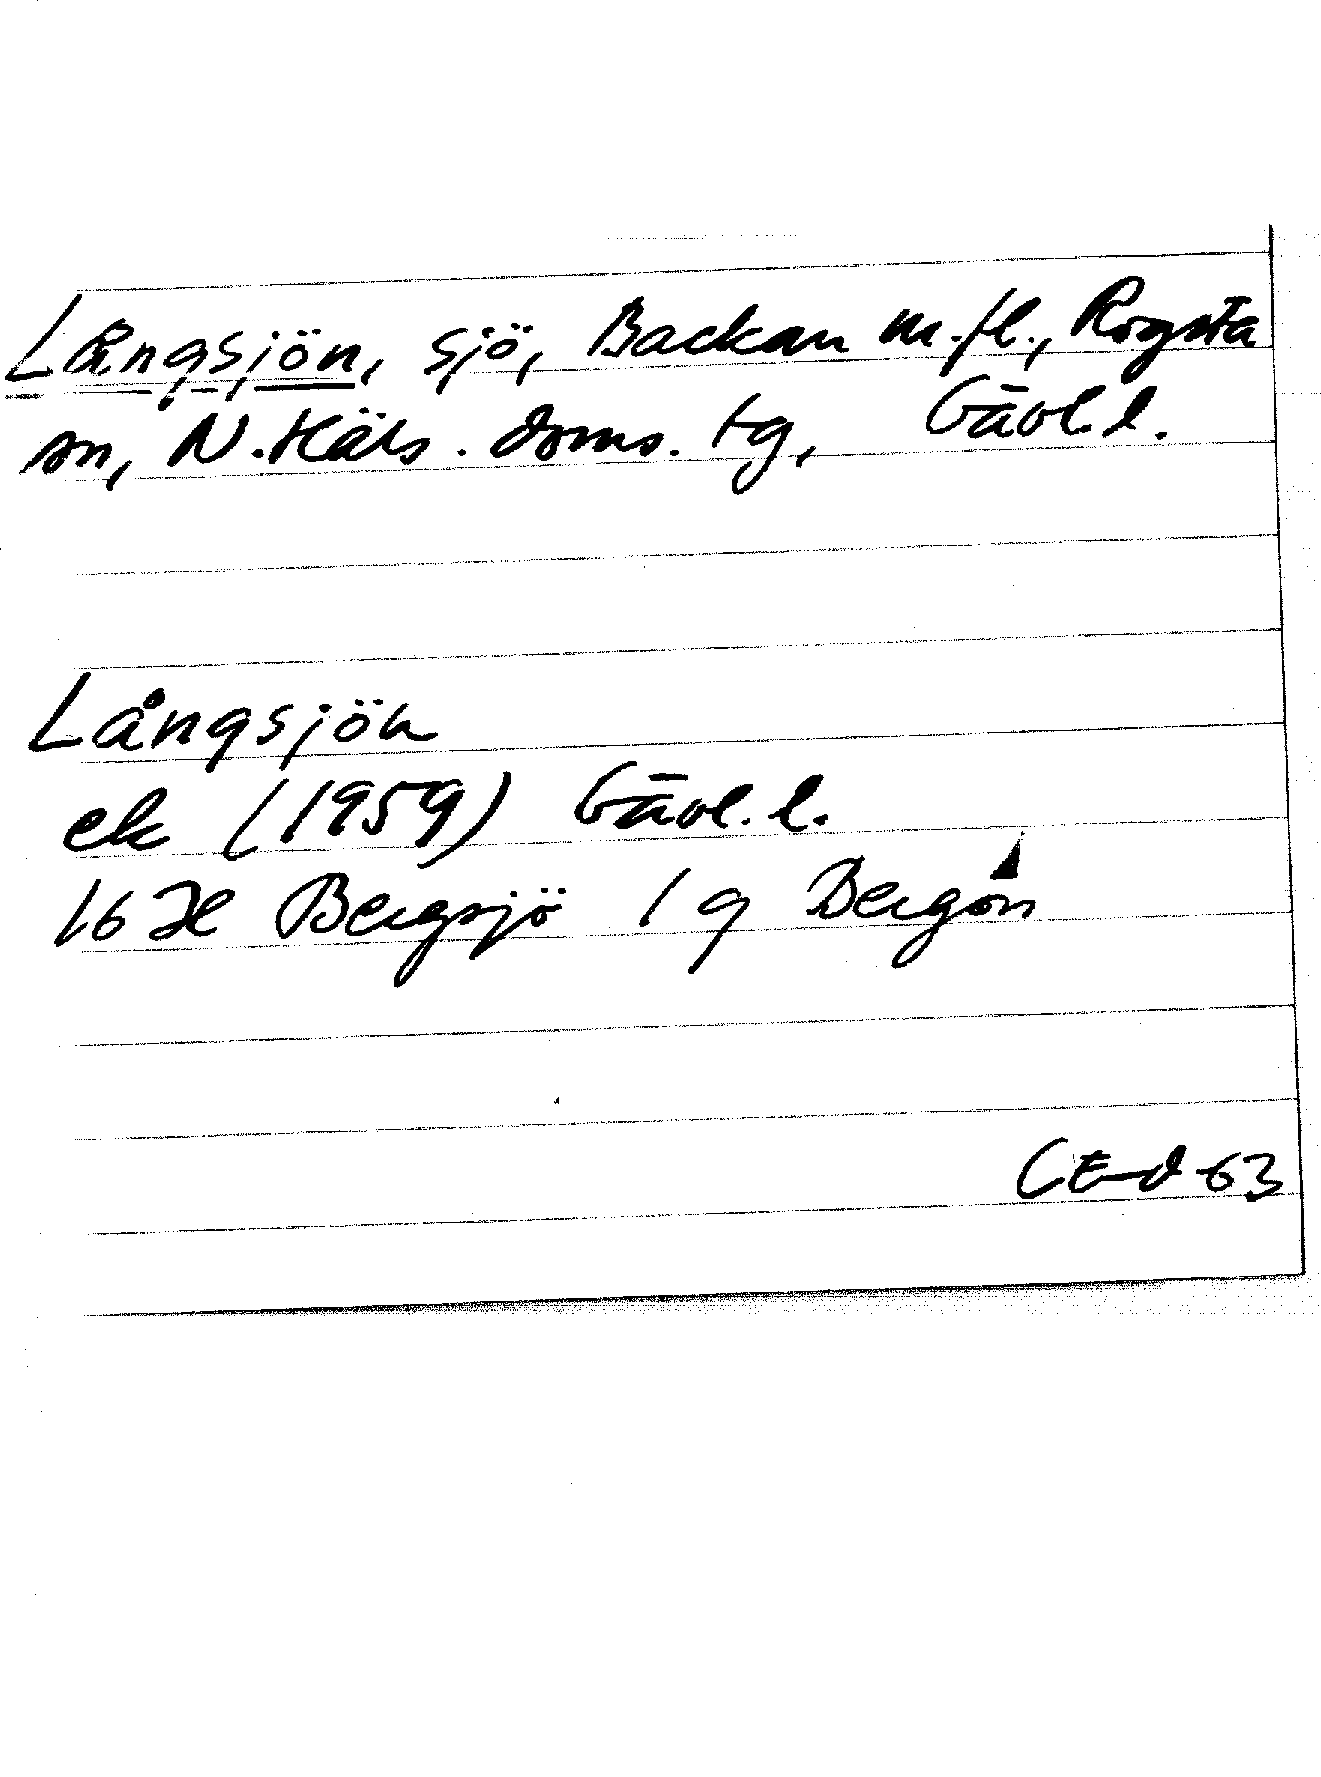 Långsjön, sjö, Backan m.fl., Rogsta
sn, N.Häls. doms. tg, Gävl.l.
Långsjön
ek (1959) Gävl.l.
16 H Bergsjö 1 g Bergön
CE-d 63